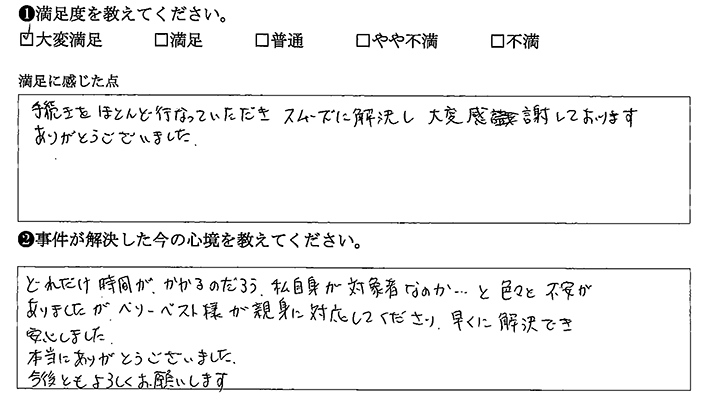 ❶満足度を教えてください。
☑大変満足 □満足 □普通 □やや不満 □不満
満足に感じた点
手続きをほとんど行なっていただき スムーズに解決し 大変感謝しております
ありがとうございました.
❷事件が解決した今の心境を教えてください。
どれだけ時間が、かかるのだろう、私自身が対象者なのか…と色々と不安が
ありましたが、ベリーベスト様が親身に対応してくださり、早くに解決でき
安心しました.
本当にありがとうございました.
今後ともよろしくお願いします